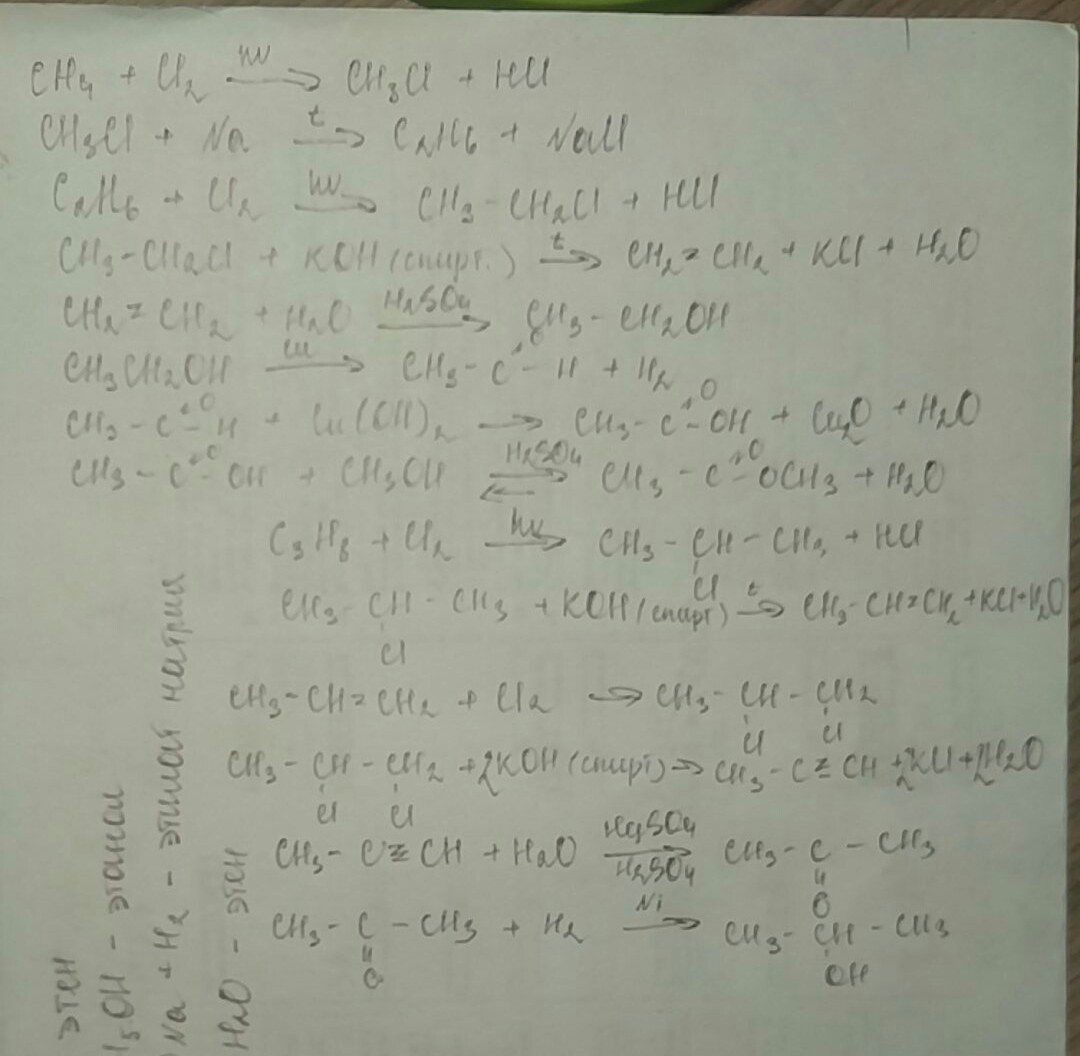 CH4 + Cl2 hν→ CH3Cl + HCl
CH3Cl + Na t→ C2H6 + NaCl
C2H6 + Cl2 hν→ CH3-CH2Cl + HCl
CH3-CH2Cl + KOH (спирт.) t→ CH2=CH2 + KCl + H2O
CH2=CH2 + H2O H2SO4→ CH3-CH2OH
CH3CH2OH Cu→ CH3-C(=O)-H + H2
CH3-C(=O)-H + Cu(OH)2 → CH3-C(=O)-OH + Cu2O + H2O
CH3-C(=O)-OH + CH3OH H2SO4⇄ CH3-C(=O)-OCH3 + H2O
C3H8 + Cl2 hν→ CH3-CH-CH3 + HCl
Cl
CH3-CH-CH3 + KOH (спирт) t→ CH3-CH=CH2+KCl+H2O
Cl
CH3-CH=CH2 + Cl2 → CH3-CH-CH2
Cl Cl
CH3-CH-CH2 +2KOH (спирт)→ CH3-C≡CH +2KCl+2H2O
Cl Cl
CH3-C≡CH + H2O HgSO4 H2SO4→ CH3-C-CH3
O
CH3-C-CH3 + H2 Ni→ CH3-CH-CH3
O OH
этен
H5OH - этанол
Na + H2 - этилат натрия
H2O - этен